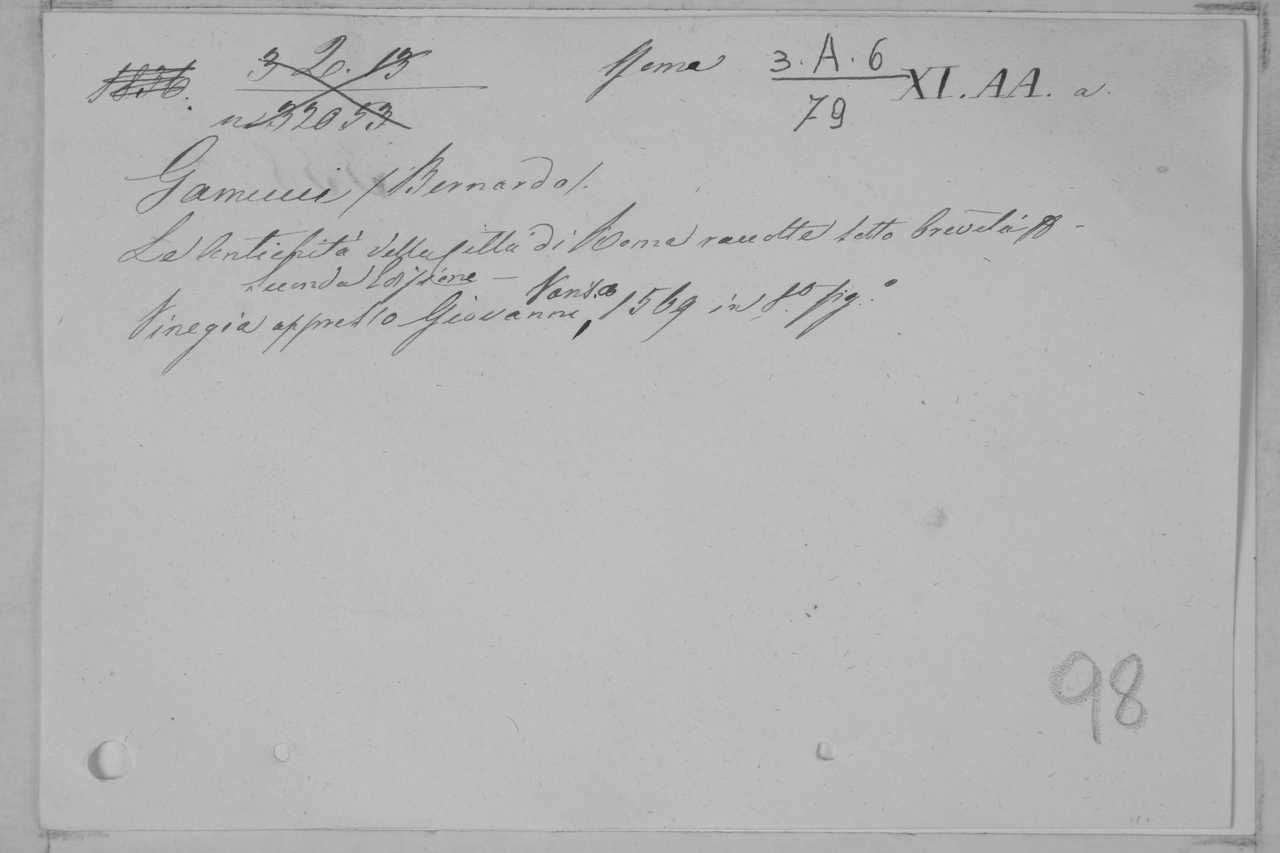 1836. 3 2. 13 Roma 3.A.6 XI.AA. a.
n. 32053 79
Gamucci /Bernardo/.
Le Antichità della città di Roma raccolte sotto brevità -
Seconda Edizione —
Vinegia appresso Giovanni Varisco, 1569 in 8º fig.º
98